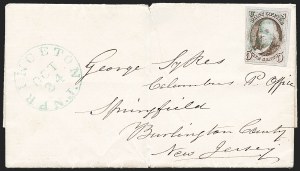 PRINCETON N.J.
OCT
24
POST OFFICE
George Sykes
Columbus P. Office
Springfield
Burlington County
New Jersey